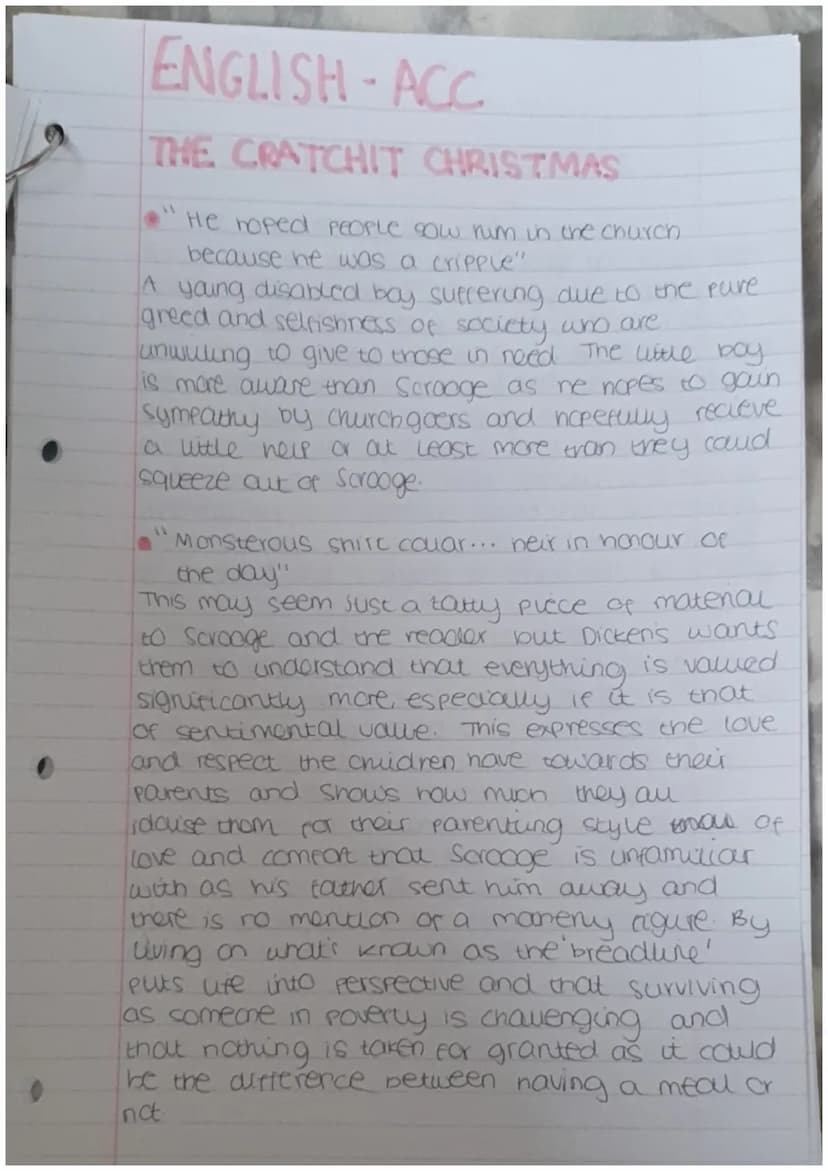 ENGLISH - ACC
THE CRATCHIT CHRISTMAS
• "He hoped people saw him in the church
because he was a cripple"
A young disabled boy suffering due to the pure
greed and selfishness of society who are
unwilling to give to those in need The little boy
is more aware than Scrooge as he hopes to gain
sympathy by churchgoers and hopefully recieve
a little help or at least more than they could
squeeze out of Scrooge.
• "Monsterous shirt collar... heir in honour of
the day"
This may seem just a tatty piece of material
to Scrooge and the reader but Dickens wants
them to understand that everything is valued
significantly more, especially if it is that
of sentimental value. This expresses the love
and respect the children have towards their
parents and shows how much they all
idolise them for their parenting style of
love and comfort that Scrooge is unfamiliar
with as his father sent him away and
there is no mention of a motherly figure. By
living on what's known as the 'breadline'
puts life into perspective and that surviving
as someone in poverty is challenging and
that nothing is taken for granted as it could
be the difference between having a meal or
not